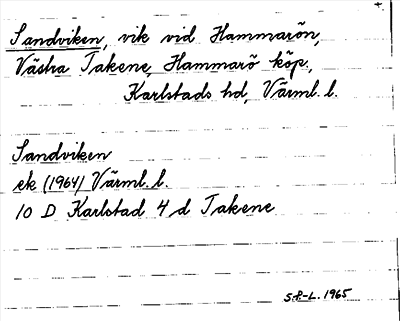 Sandviken, vik vid Hammarön,
Västra Takene, Hammarö köp,
Karlstads hd, Värml. l.
Sandviken
ek (1964) Värml. l.
10 D Karlstad 4 d Takene
S.P-L. 1965